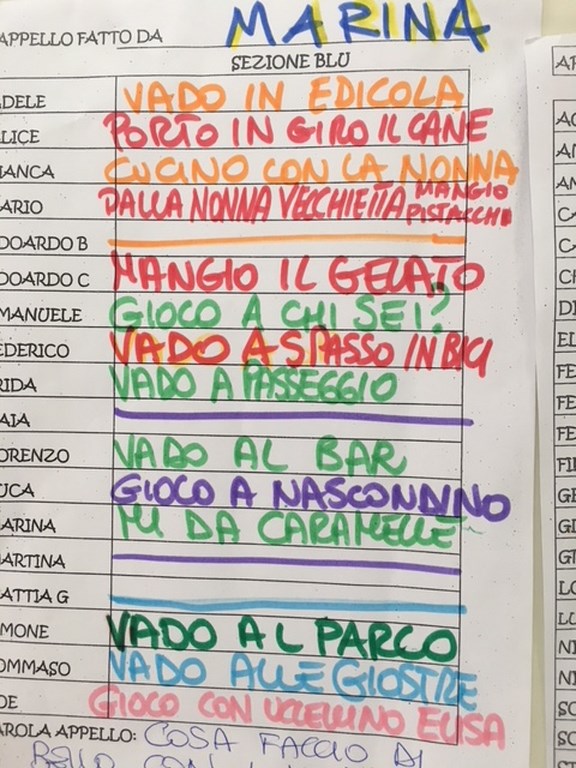 APPELLO FATTO DA MARINA
SEZIONE BLU
DELE VADO IN EDICOLA
LICE PORTO IN GIRO IL CANE
IANCA CUCINO CON LA NONNA
ARIO DALLA NONNA VECCHIETTA MANGIO PISTACCHI
DOARDO B
DOARDO C MANGIO IL GELATO
MANUELE GIOCO A CHI SEI?
EDERICO VADO A SPASSO IN BICI
RIDA VADO A PASSEGGIO
AIA
ORENZO VADO AL BAR
UCA GIOCO A NASCONDINO
ARINA MI DA CARAMELLE
ARTINA
ATTIA G
MONE VADO AL PARCO
OMMASO VADO ALLE GIOSTRE
OE GIOCO CON UCCELLINO ELISA
AROLA APPELLO: COSA FACCIO DI
BELLO CON